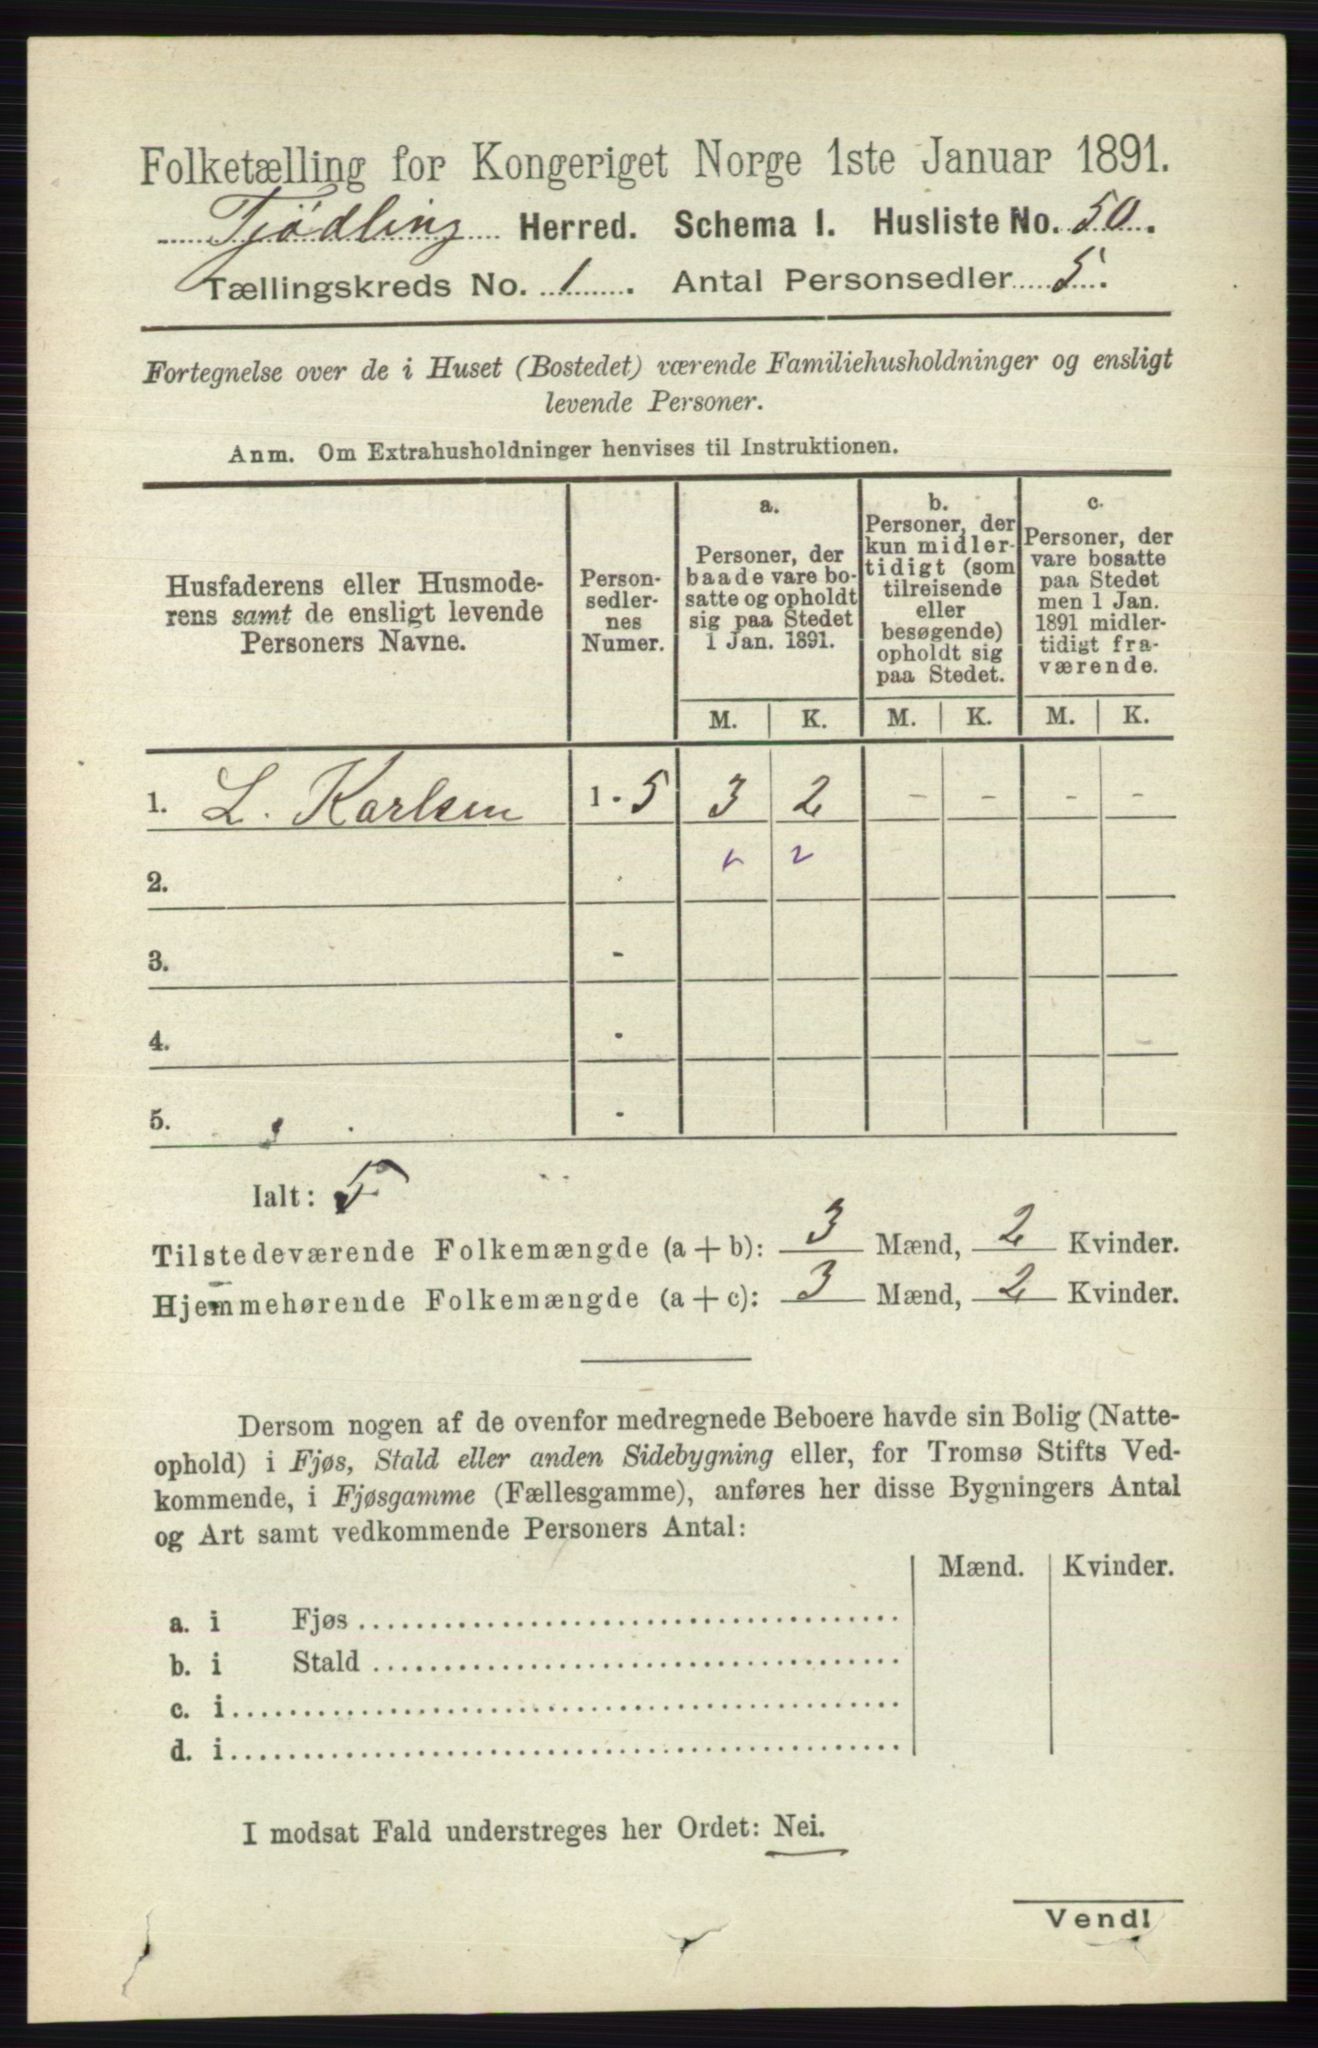 Folketælling for Kongeriget Norge 1ste Januar 1891.
Tjødling Herred. Schema I. Husliste No. 50.
Tællingskreds No. 1. Antal Personsedler 5.
Fortegnelse over de i Huset (Bostedet) værende Familiehusholdninger og ensligt
levende Personer.
Anm. Om Extrahusholdninger henvises til Instruktionen.
Husfaderens eller Husmode-
rens samt de ensligt levende
Personers Navne.
Person-
sedler-
nes
Numer.
a.
Personer, der
baade vare bo-
satte og opholdt
sig paa Stedet
1 Jan. 1891.
b.
Personer, der
kun midler-
tidigt (som
tilreisende
eller
besøgende)
opholdt sig
paa Stedet.
c.
Personer, der
vare bosatte
paa Stedet
men 1 Jan.
1891 midler-
tidigt fra-
værende.
M. K. M. K. M. K.
1. L. Karlsen 1 - 5 3 2 - - - -
2.
3. -
4. -
5. -
Ialt: 5
Tilstedeværende Folkemængde (a + b): 3 Mænd, 2 Kvinder.
Hjemmehørende Folkemængde (a + c): 3 Mænd, 2 Kvinder.
Dersom nogen af de ovenfor medregnede Beboere havde sin Bolig (Natte-
ophold) i Fjøs, Stald eller anden Sidebygning eller, for Tromsø Stifts Ved-
kommende, i Fjøsgamme (Fællesgamme), anføres her disse Bygningers Antal
og Art samt vedkommende Personers Antal:
Mænd. Kvinder.
a. i Fjøs
b. i Stald
c. i
d. i
I modsat Fald understreges her Ordet: Nei.
Vend!